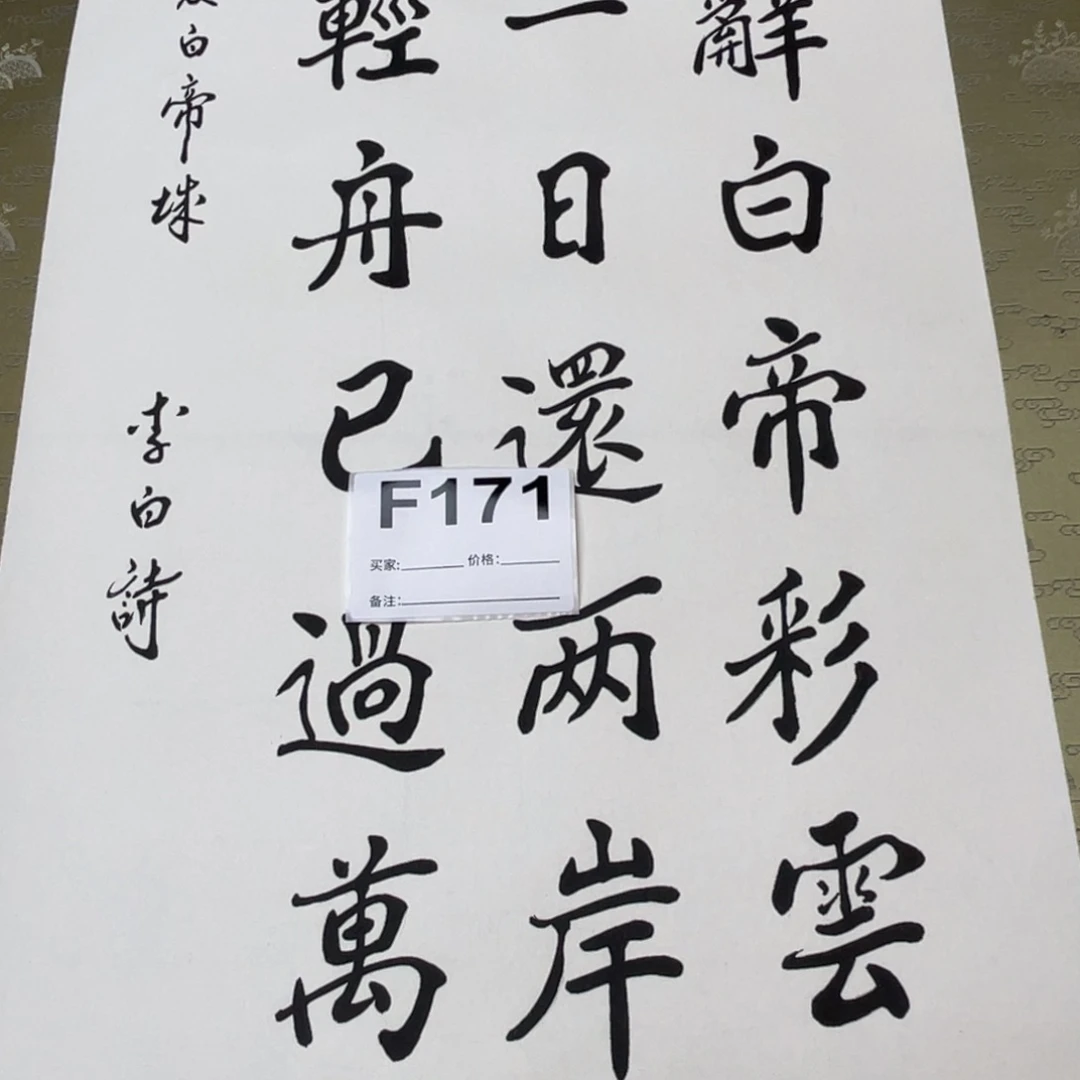 辭白帝彩雲
一日還两岸
輕舟已過萬
白帝城
李白詩
F171
买家: 价格:
备注: